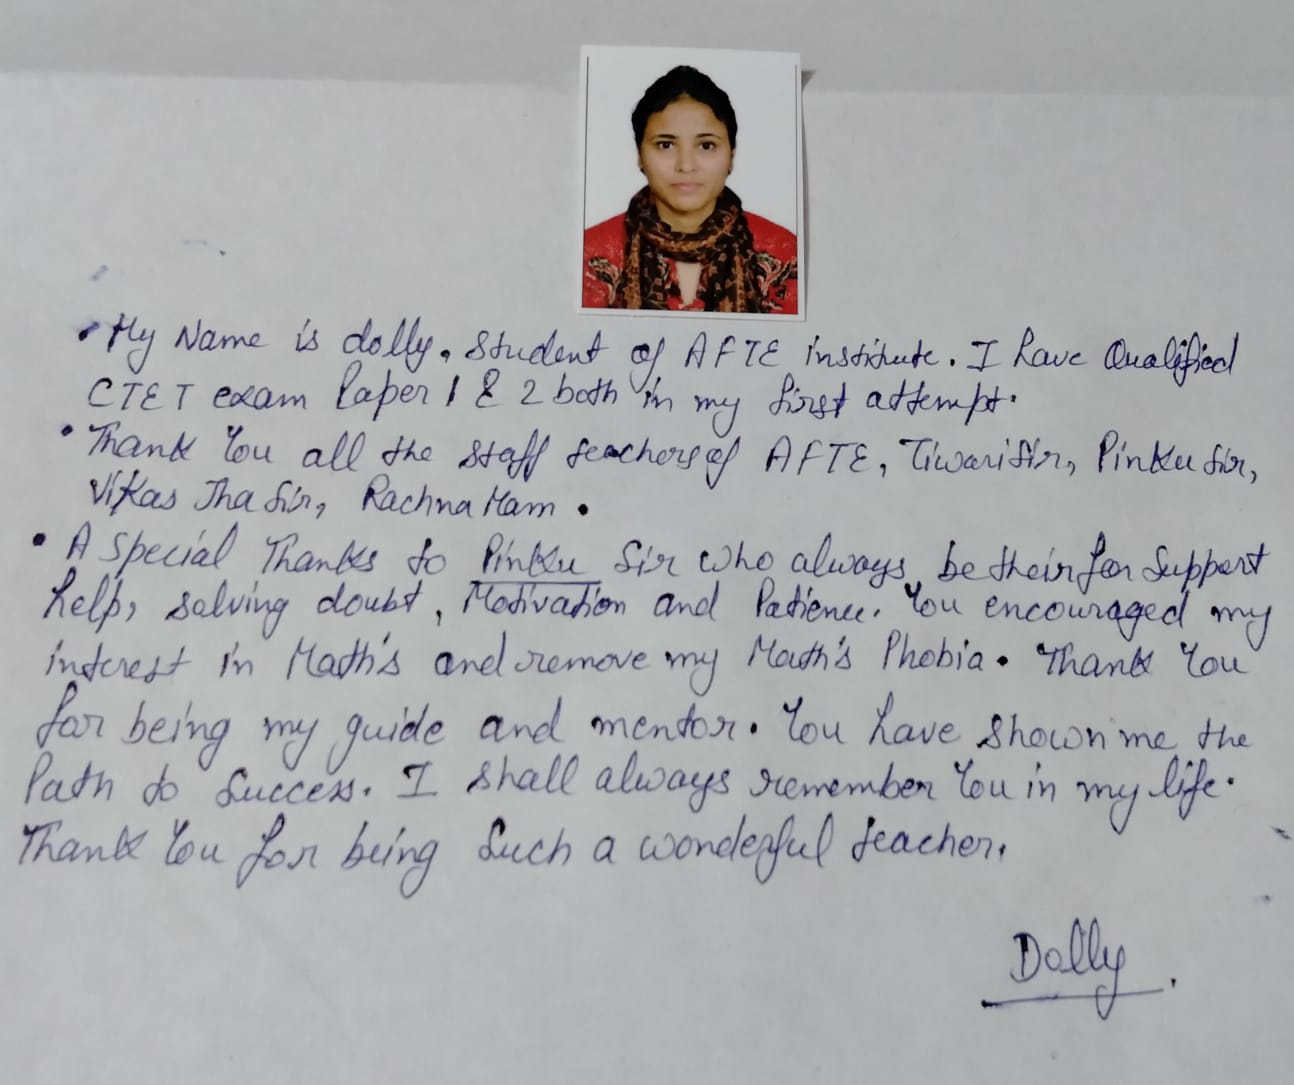 • My Name is dolly, Student of AFTE institute. I have Qualified
CTET exam Paper 1 & 2 both in my first attempt.
• Thank You all the staff teachers of AFTE, Tiwari Sir, Pinku Sir,
Vikas Jha Sir, Rachna Mam.
• A Special Thanks to Pinku Sir who always be their for Support
help, solving doubt, Motivation and Patience. You encouraged my
interest in Math's and remove my Math's Phobia. Thank You
for being my guide and mentor. You have shown me the
Path to Success. I shall always remember You in my life.
Thank You for being Such a wonderful teacher.
Dolly.